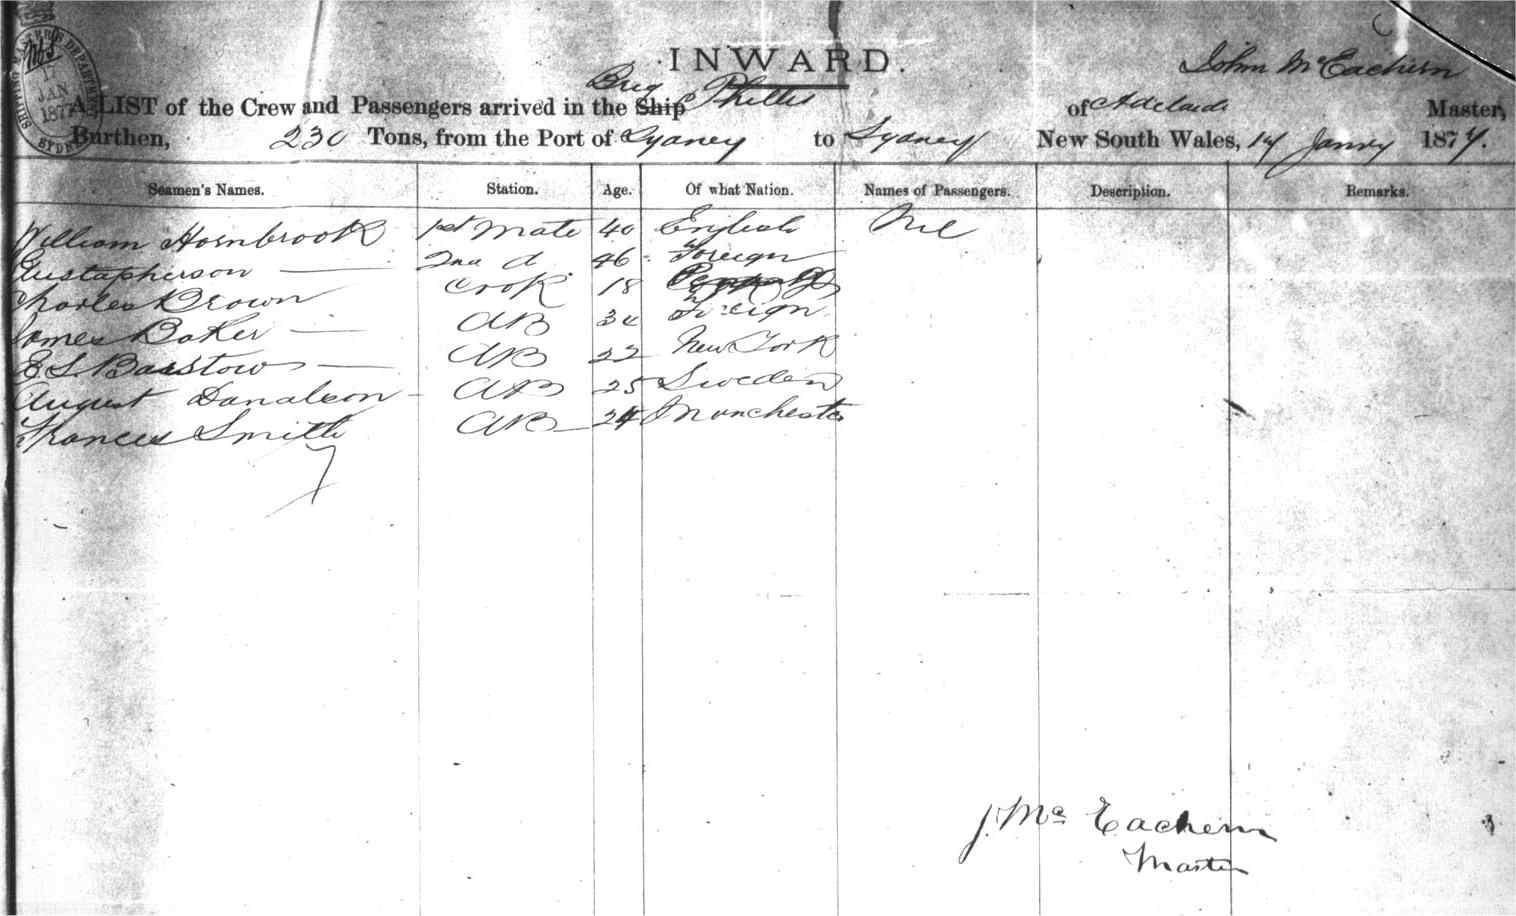 INWARD.
John McEachern
Brig Phillis
A LIST of the Crew and Passengers arrived in the Ship of Adelaide Master,
Burthen, 230 Tons, from the Port of Sydney to Sydney New South Wales, 14 Janry 1877.
Seamen's Names. Station. Age. Of what Nation. Names of Passengers. Description. Remarks.
William Hornbrook 1st Mate 40 English Nil
Gustapherson 2nd d 46 Foreign
Charles Brown Cook 18
James Baker AB 30 Foreign
E S Barstow AB 22 New York
August Danalson AB 25 Sweden
Frances Smith AB 24 Manchester
7
J. Mc Eachern
Master
SHIPPING MASTER'S DEPART
17
JAN
1877
SYDNEY